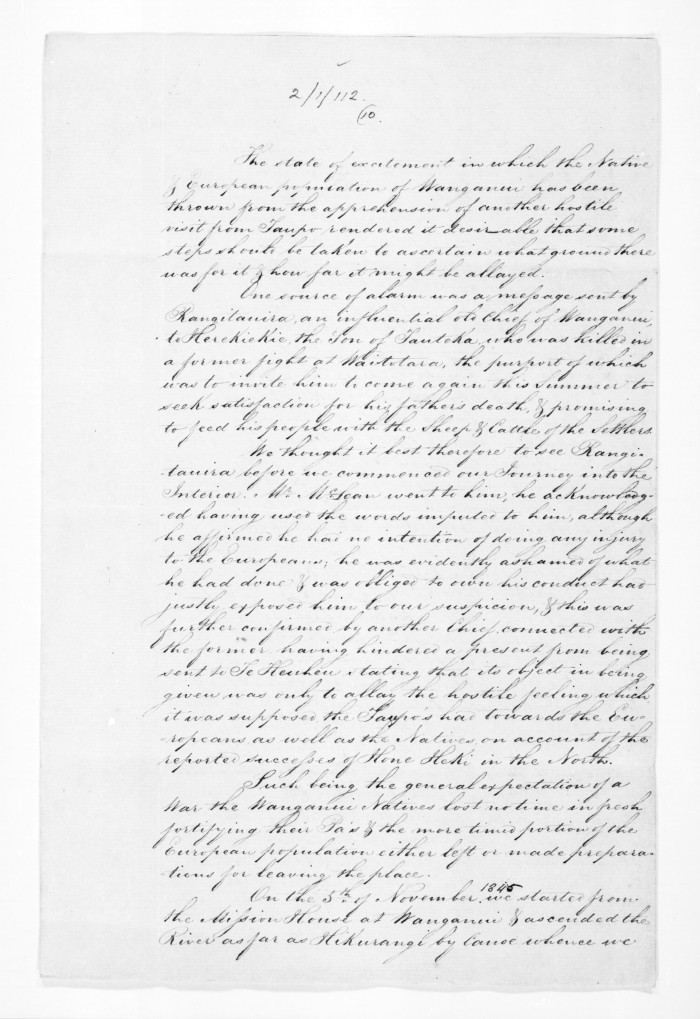 2/1/112.
10.
The state of excitement in which the Native
& European population of Wanganui has been
thrown from the apprehension of another hostile
visit from Taupo, rendered it desirable that some
steps should be taken to ascertain what ground there
was for it & how far it might be allayed.
One source of alarm was a message sent by
Rangitauira, an influential old Chief of Wanganui,
to Herekiekie, the Son of Tauteka, who was killed in
a former fight at Waitotara, the purport of which
was to invite him to come again this Summer to
seek satisfaction for his father's death, & promising
to feed his people with the Sheep & Cattle of the Settlers.
We thought it best therefore to see Rangi-
tauira before we commenced our Journey into the
Interior. Mr. McLean went to him; he acknowledg-
ed having used the words imputed to him, although
he affirmed he had no intention of doing any injury
to the Europeans; he was evidently ashamed of what
he had done & was obliged to own his conduct had
justly exposed him to our suspicion, & this was
further confirmed by another Chief connected with
the former having hindered a present from being
sent to Te Heuheu stating that its object in being
given was only to allay the hostile feeling which
it was supposed the Taupo's had towards the Eu-
ropeans as well as the Natives, on account of the
reported successes of Hone Heki in the North.
Such being the general expectation of a
War the Wanganui Natives lost no time in fresh
fortifying their Pa's & the more timid portion of the
European population either left or made prepara-
tions for leaving the place.
On the 5th of November 1845 we started from
the Mission House at Wanganui & ascended the
River as far as Hikurangi by Canoe whence we